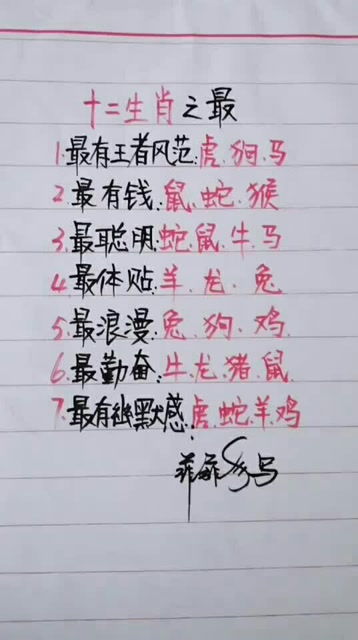 十二生肖之最
1.最有王者风范:虎.狗.马
2.最有钱:鼠.蛇.猴
3.最聪明:蛇.鼠.牛.马
4.最体贴:羊.龙.兔
5.最浪漫:兔.狗.鸡
6.最勤奋:牛.龙.猪.鼠.
7.最有幽默感:虎.蛇.羊.鸡